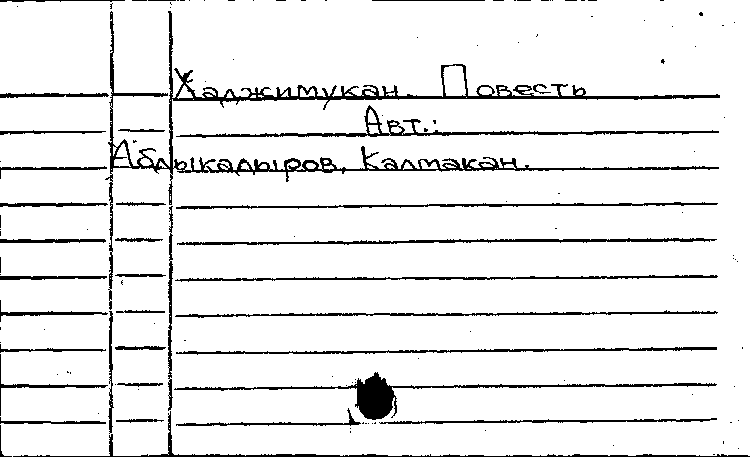 Хаджимукан. Повесть
Авт.:
Абдыкадыров, Калмакан.